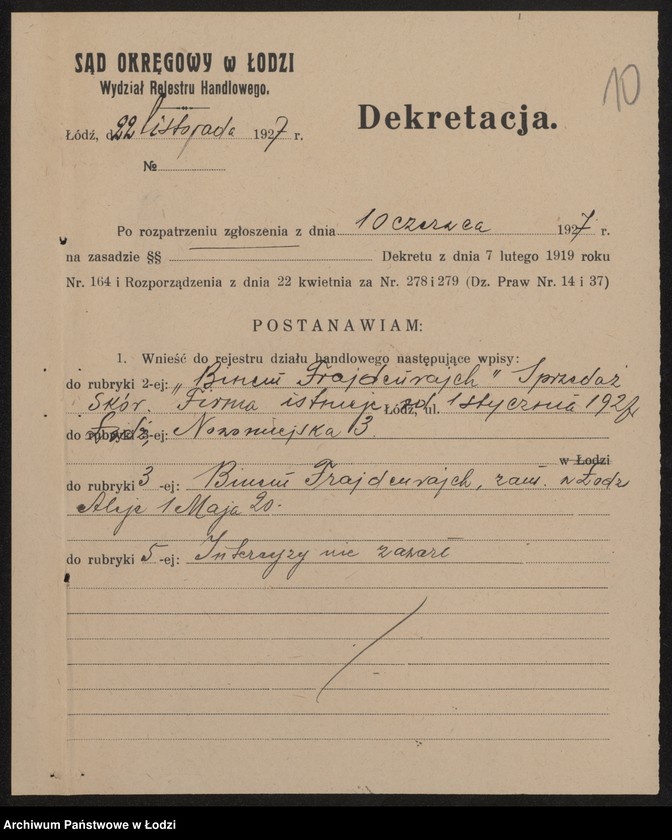 SĄD OKRĘGOWY w ŁODZI
Wydział Rejestru Handlowego.
10
Łódź, d. 22 listopada 1927 r.
Dekretacja.
№
Po rozpatrzeniu zgłoszenia z dnia 10 czerwca 1927 r.
na zasadzie §§ Dekretu z dnia 7 lutego 1919 roku
Nr. 164 i Rozporządzenia z dnia 22 kwietnia za Nr. 278 i 279 (Dz. Praw Nr. 14 i 37)
POSTANAWIAM:
1. Wnieść do rejestru działu handlowego następujące wpisy:
do rubryki 2-ej: „Binem Frajdenrajch" Sprzedaż
Skór. Firma istnieje od Łódź, ul. 1 stycznia 1927 r.
do rubryki 2-ej: Łódź, Nowomiejska 3.
w Łodzi
do rubryki 3-ej: Binem Frajdenrajch, zam. w Łodzi
Aleje 1 Maja 20.
do rubryki 5-ej: Intercyzy nie zawarł
Archiwum Państwowe w Łodzi